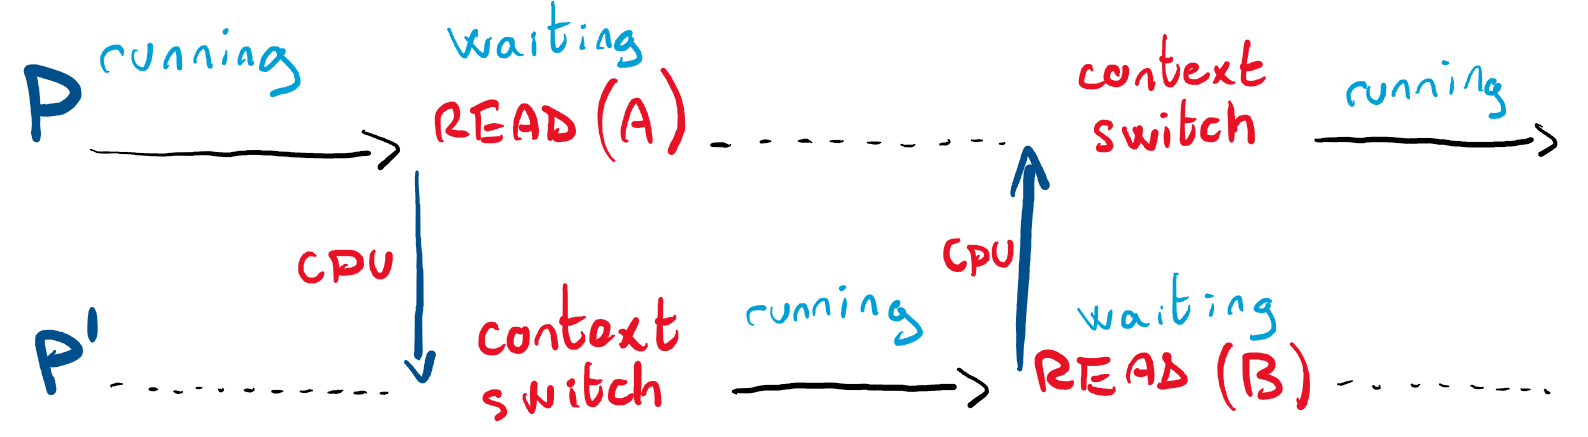 P running waiting
READ (A) context
switch running
CPU CPU
P' context
switch running waiting
READ (B)